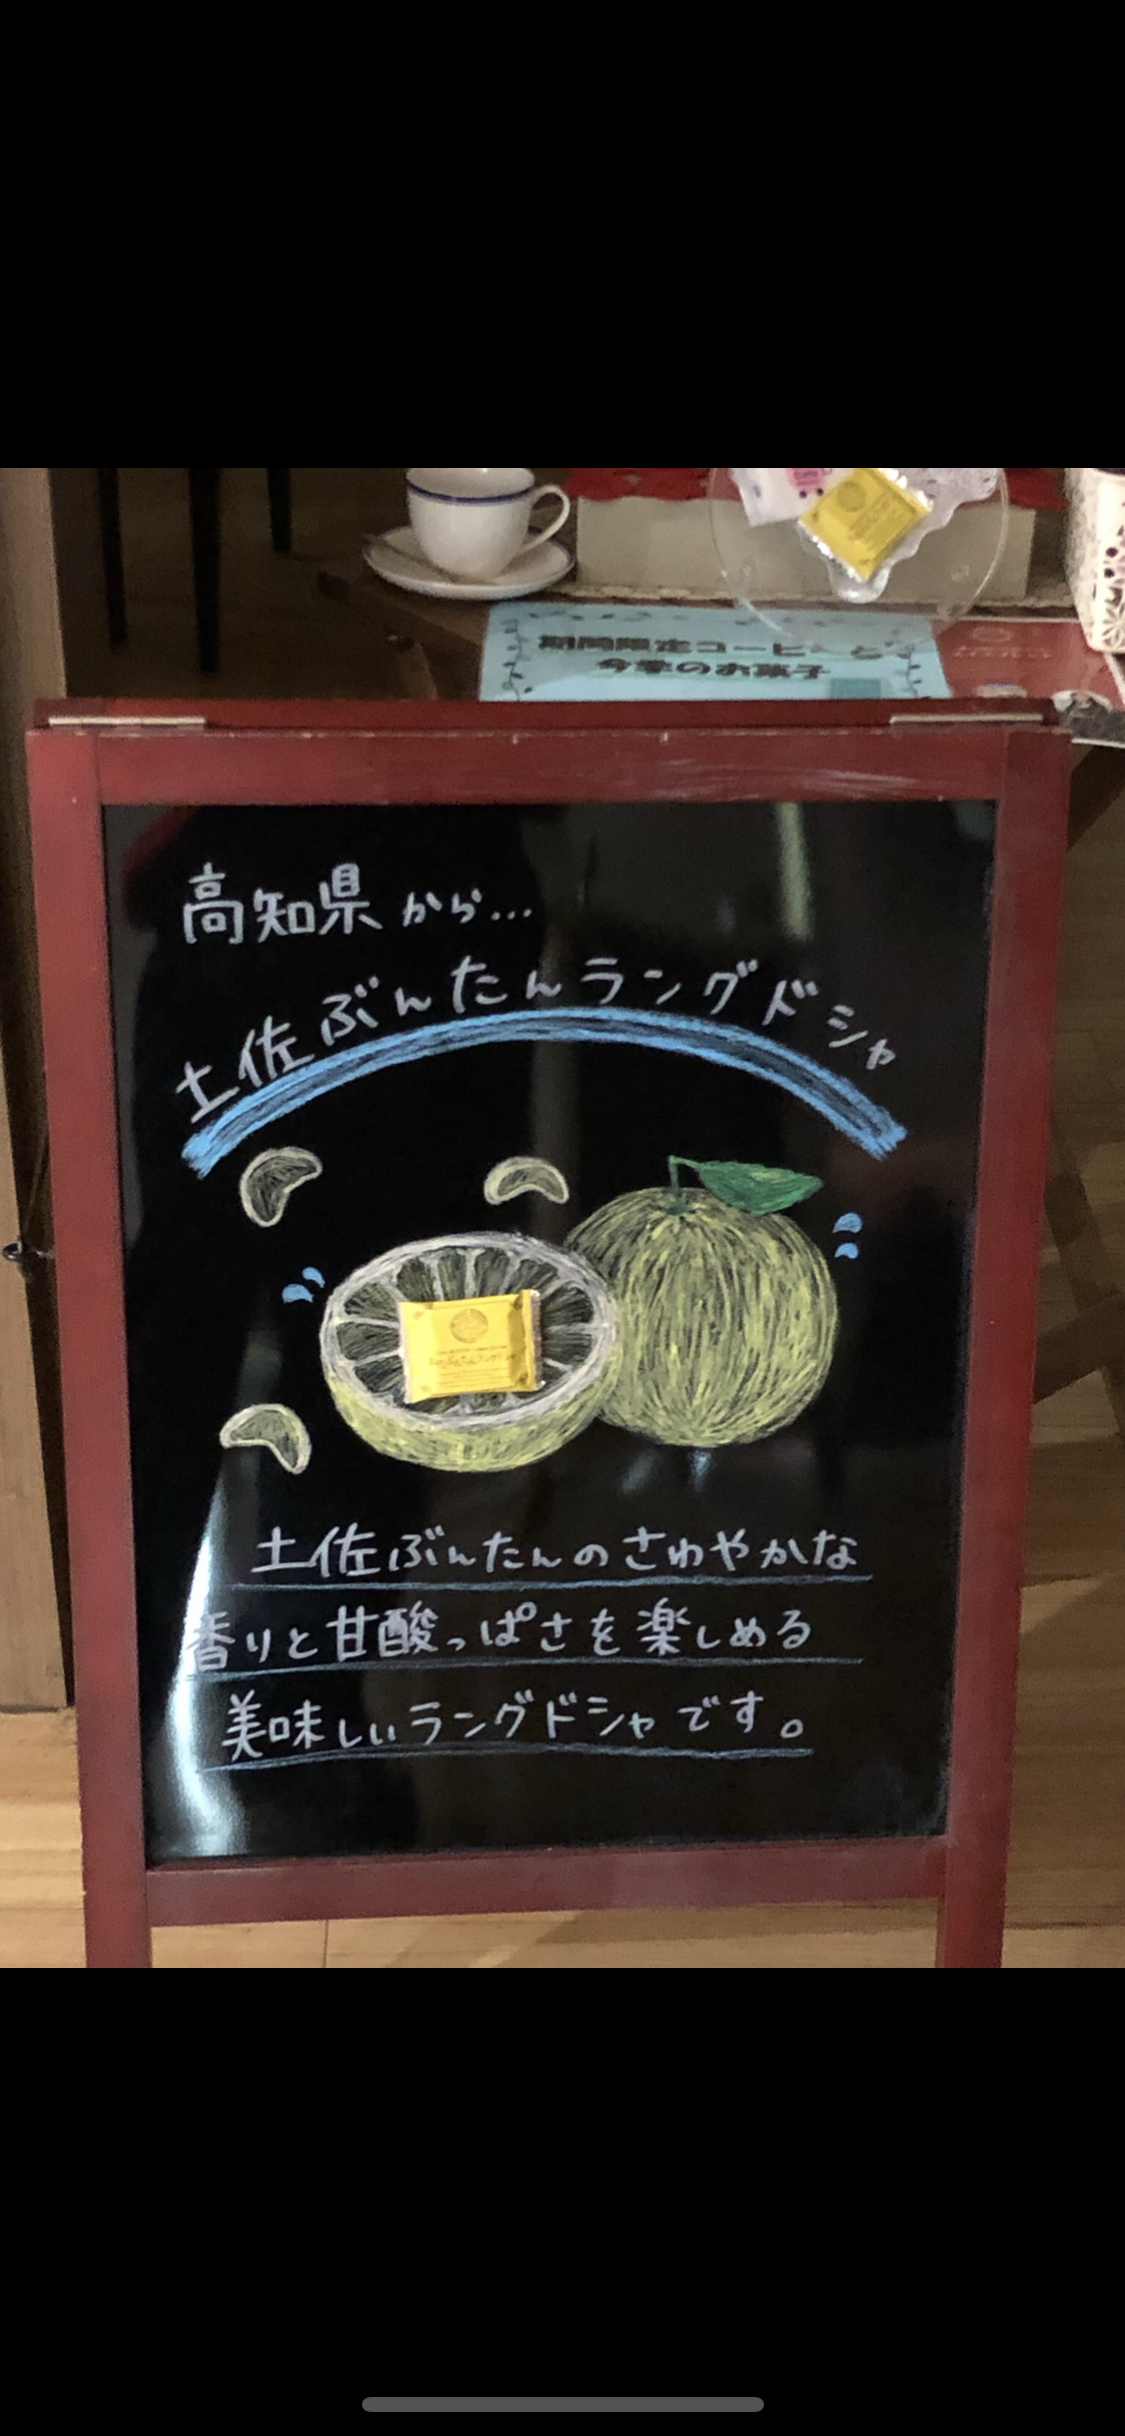 期間限定コーヒーと
今季のお菓子
高知県から...
土佐ぶんたんラングドシャ
土佐ぶんたんのさわやかな
香りと甘酸っぱさを楽しめる
美味しいラングドシャです。